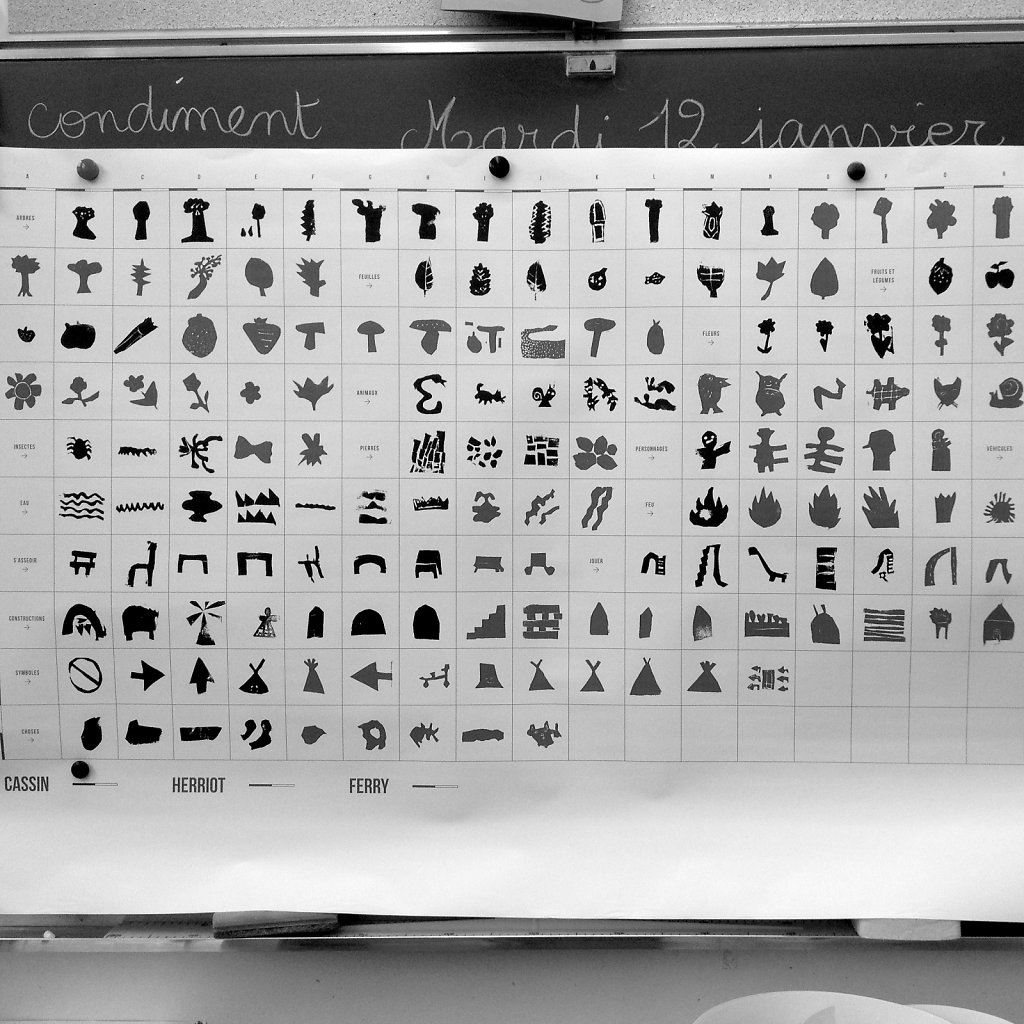 condiment Mardi 12 janvier
A C D E F G H I J K L M N P Q R
ARBRES
FEUILLES
FRUITS ET
LÉGUMES
FLEURS
ANIMAUX
INSECTES
PIERRES
PERSONNAGES
VEHICULES
EAU
FEU
S'ASSEOIR
JOUER
CONSTRUCTIONS
SYMBOLES
CHOSES
CASSIN HERRIOT FERRY